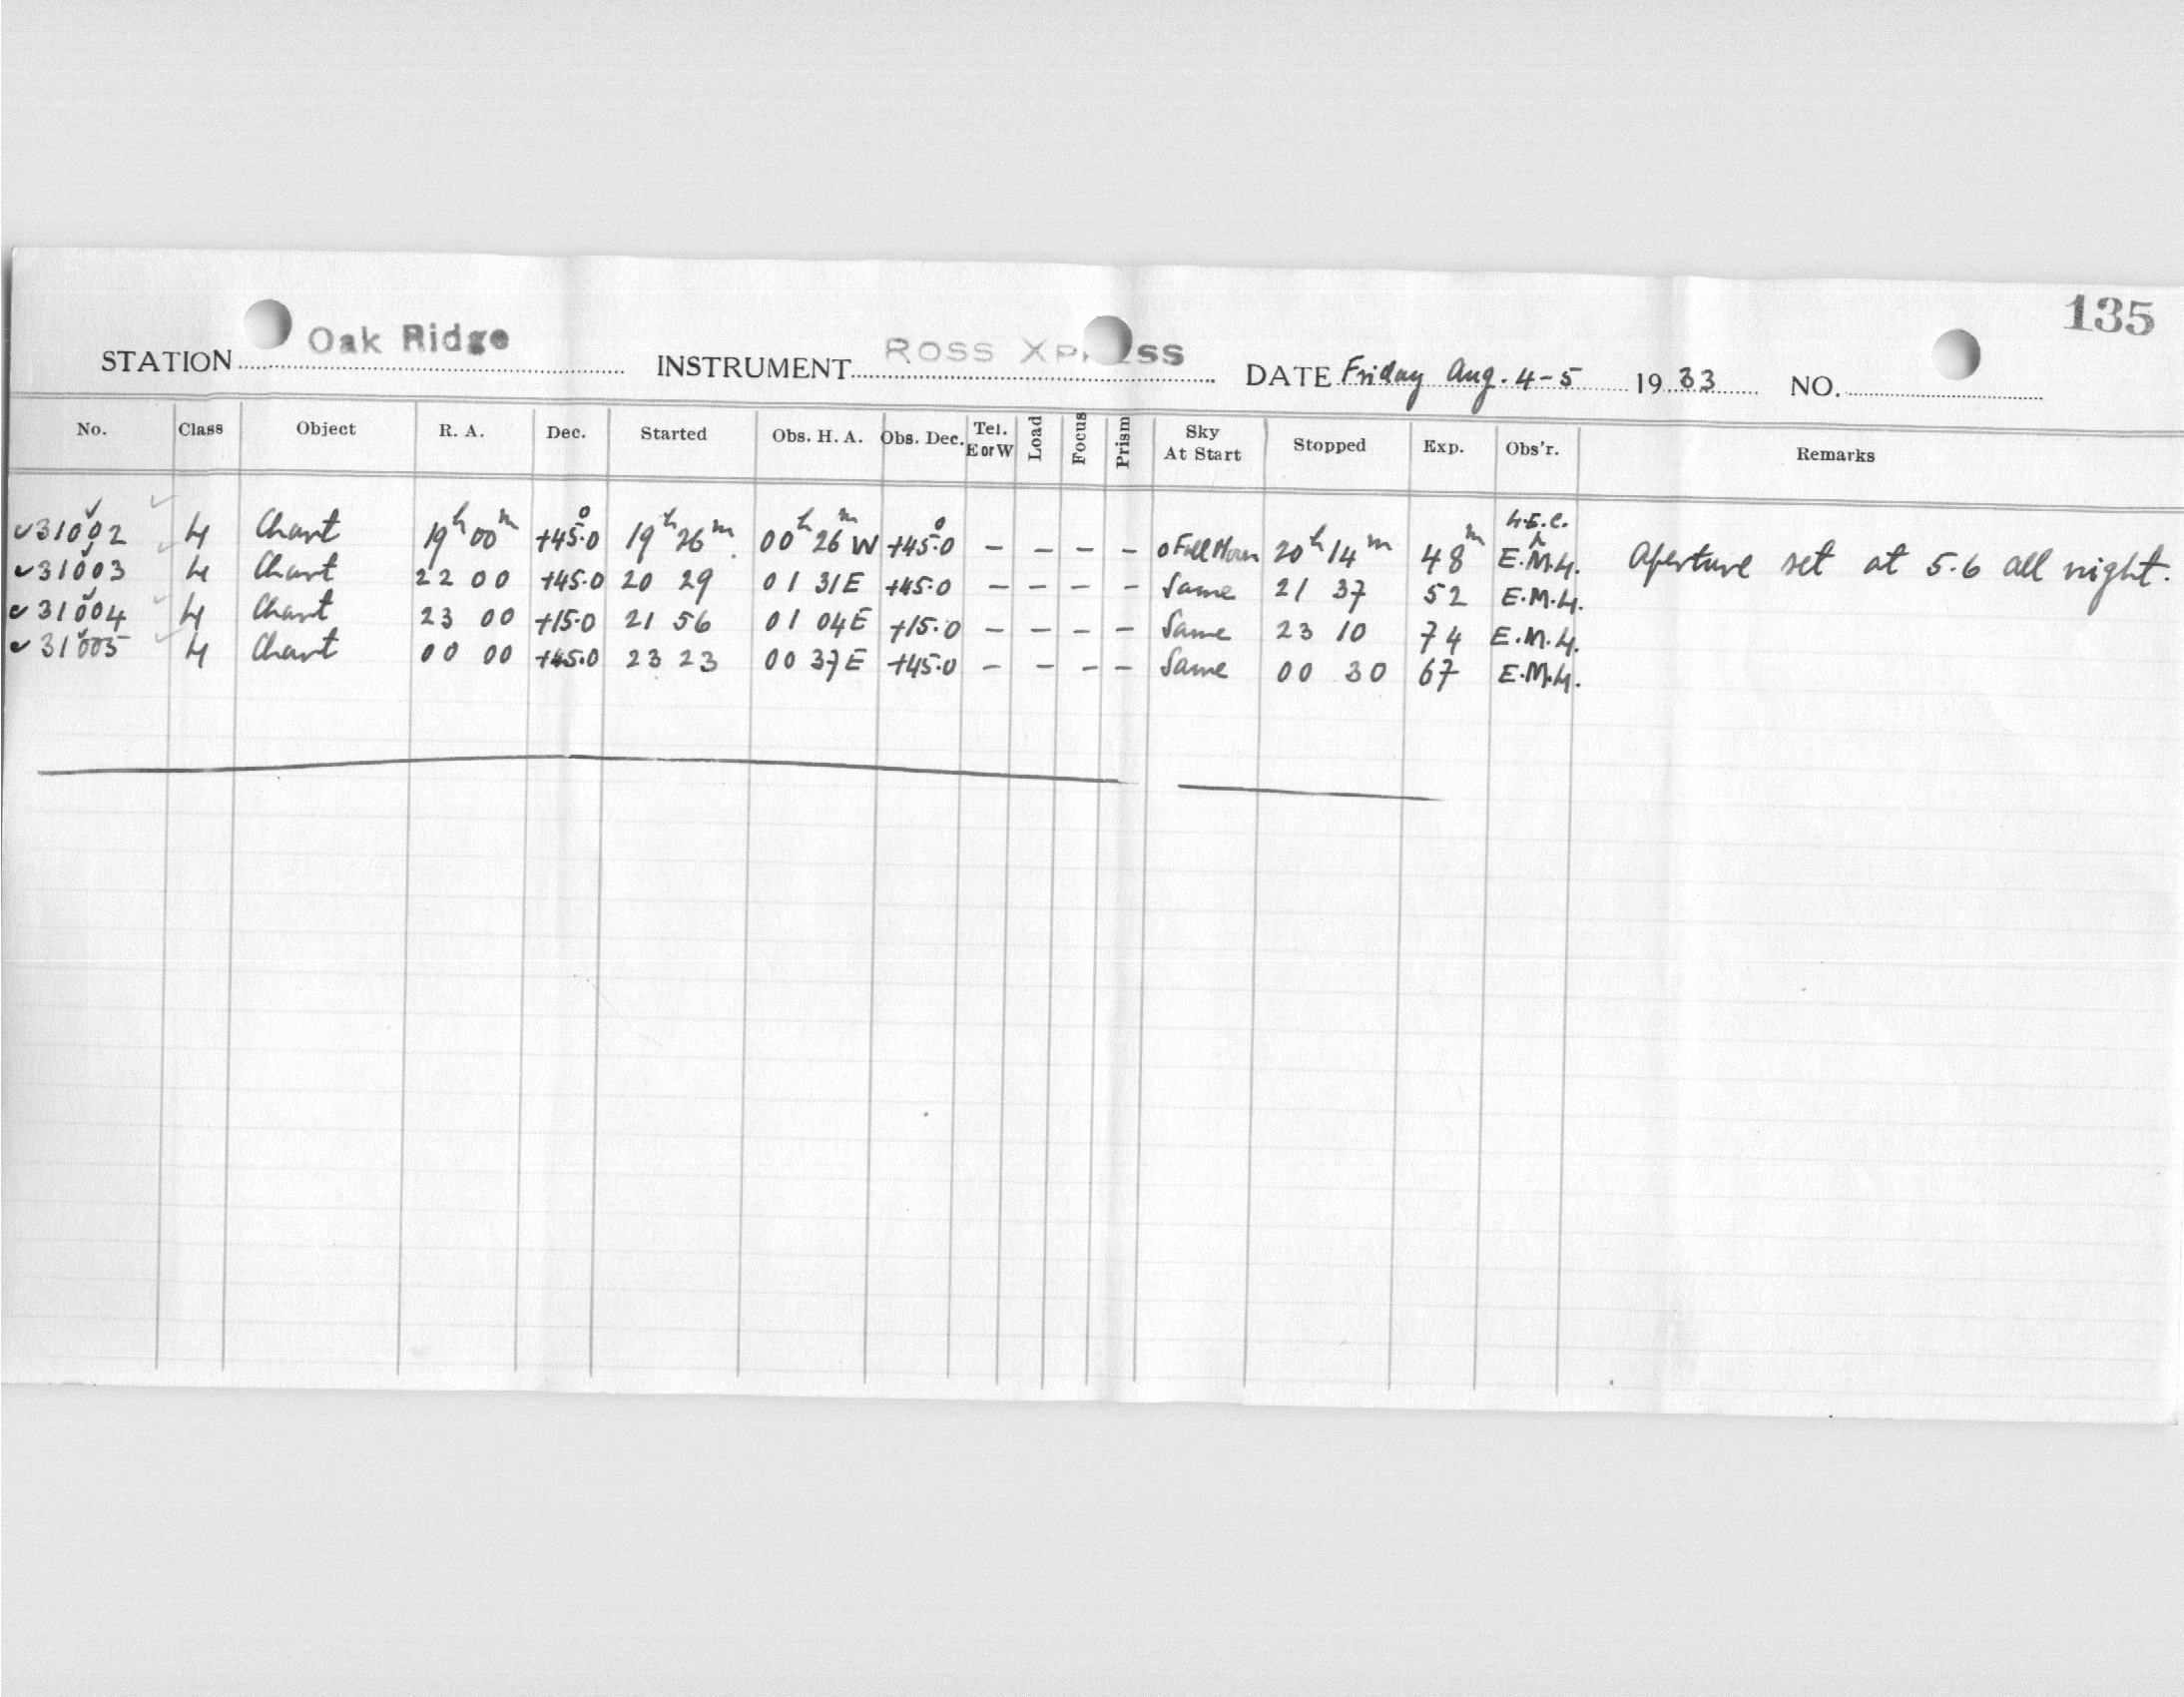 135
STATION Oak Ridge INSTRUMENT Ross Xp ss DATE Friday Aug. 4-5 1933 NO.
No. Class Object R. A. Dec. Started Obs. H. A. Obs. Dec. Tel. E or W Load Focus Prism Sky At Start Stopped Exp. Obs'r. Remarks
✓31002 H Chart 19h 00m +45°.0 19h 26m 00h 26m W +45°.0 – – – – 0 Full Moon 20h 14m 48m E.M.H. Aperture set at 5.6 all night.
✓31003 H Chart 22 00 +45.0 20 29 01 31E +45.0 – – – – Same 21 37 52 E.M.H.
✓31004 H Chart 23 00 +15.0 21 56 01 04E +15.0 – – – – Same 23 10 74 E.M.H.
✓31005 H Chart 00 00 +45.0 23 23 00 37E +45.0 – – – – Same 00 30 67 E.M.H.